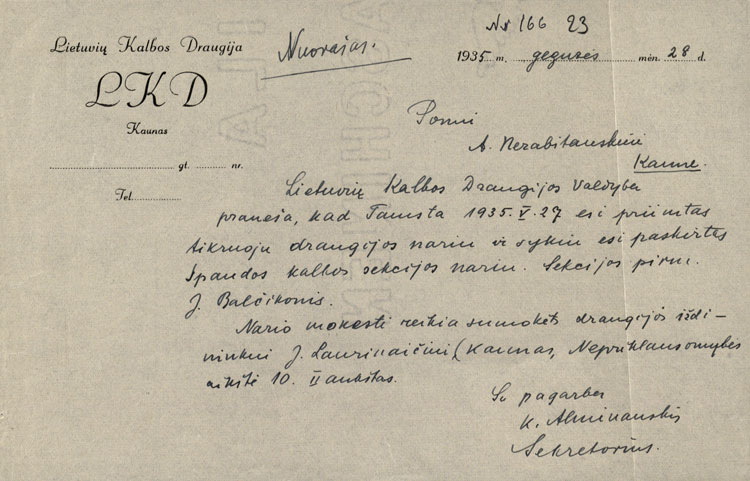 Nr 166 23
Lietuvių Kalbos Draugija
Nuorašas.
1935 m. gegužės mėn. 28 d.
LKD
Kaunas
gt. nr.
Tel.
Ponui
A. Nezabitauskiui
Kaune.
Lietuvių Kalbos Draugijos Valdyba
praneša, kad Tamsta 1935.V.27 esi priimtas
tikruoju draugijos nariu ir sykiu esi paskirtas
Spaudos kalbos sekcijos nariu. Sekcijos pirm.
J. Balčikonis.
Nario mokestį reikia sumokėti draugijos iždi–
ninkui J. Laurinaičiui (Kaunas, Nepriklausomybės
aikštė 10. II aukštas.
Su pagarba
K. Alminauskis
Sekretorius.